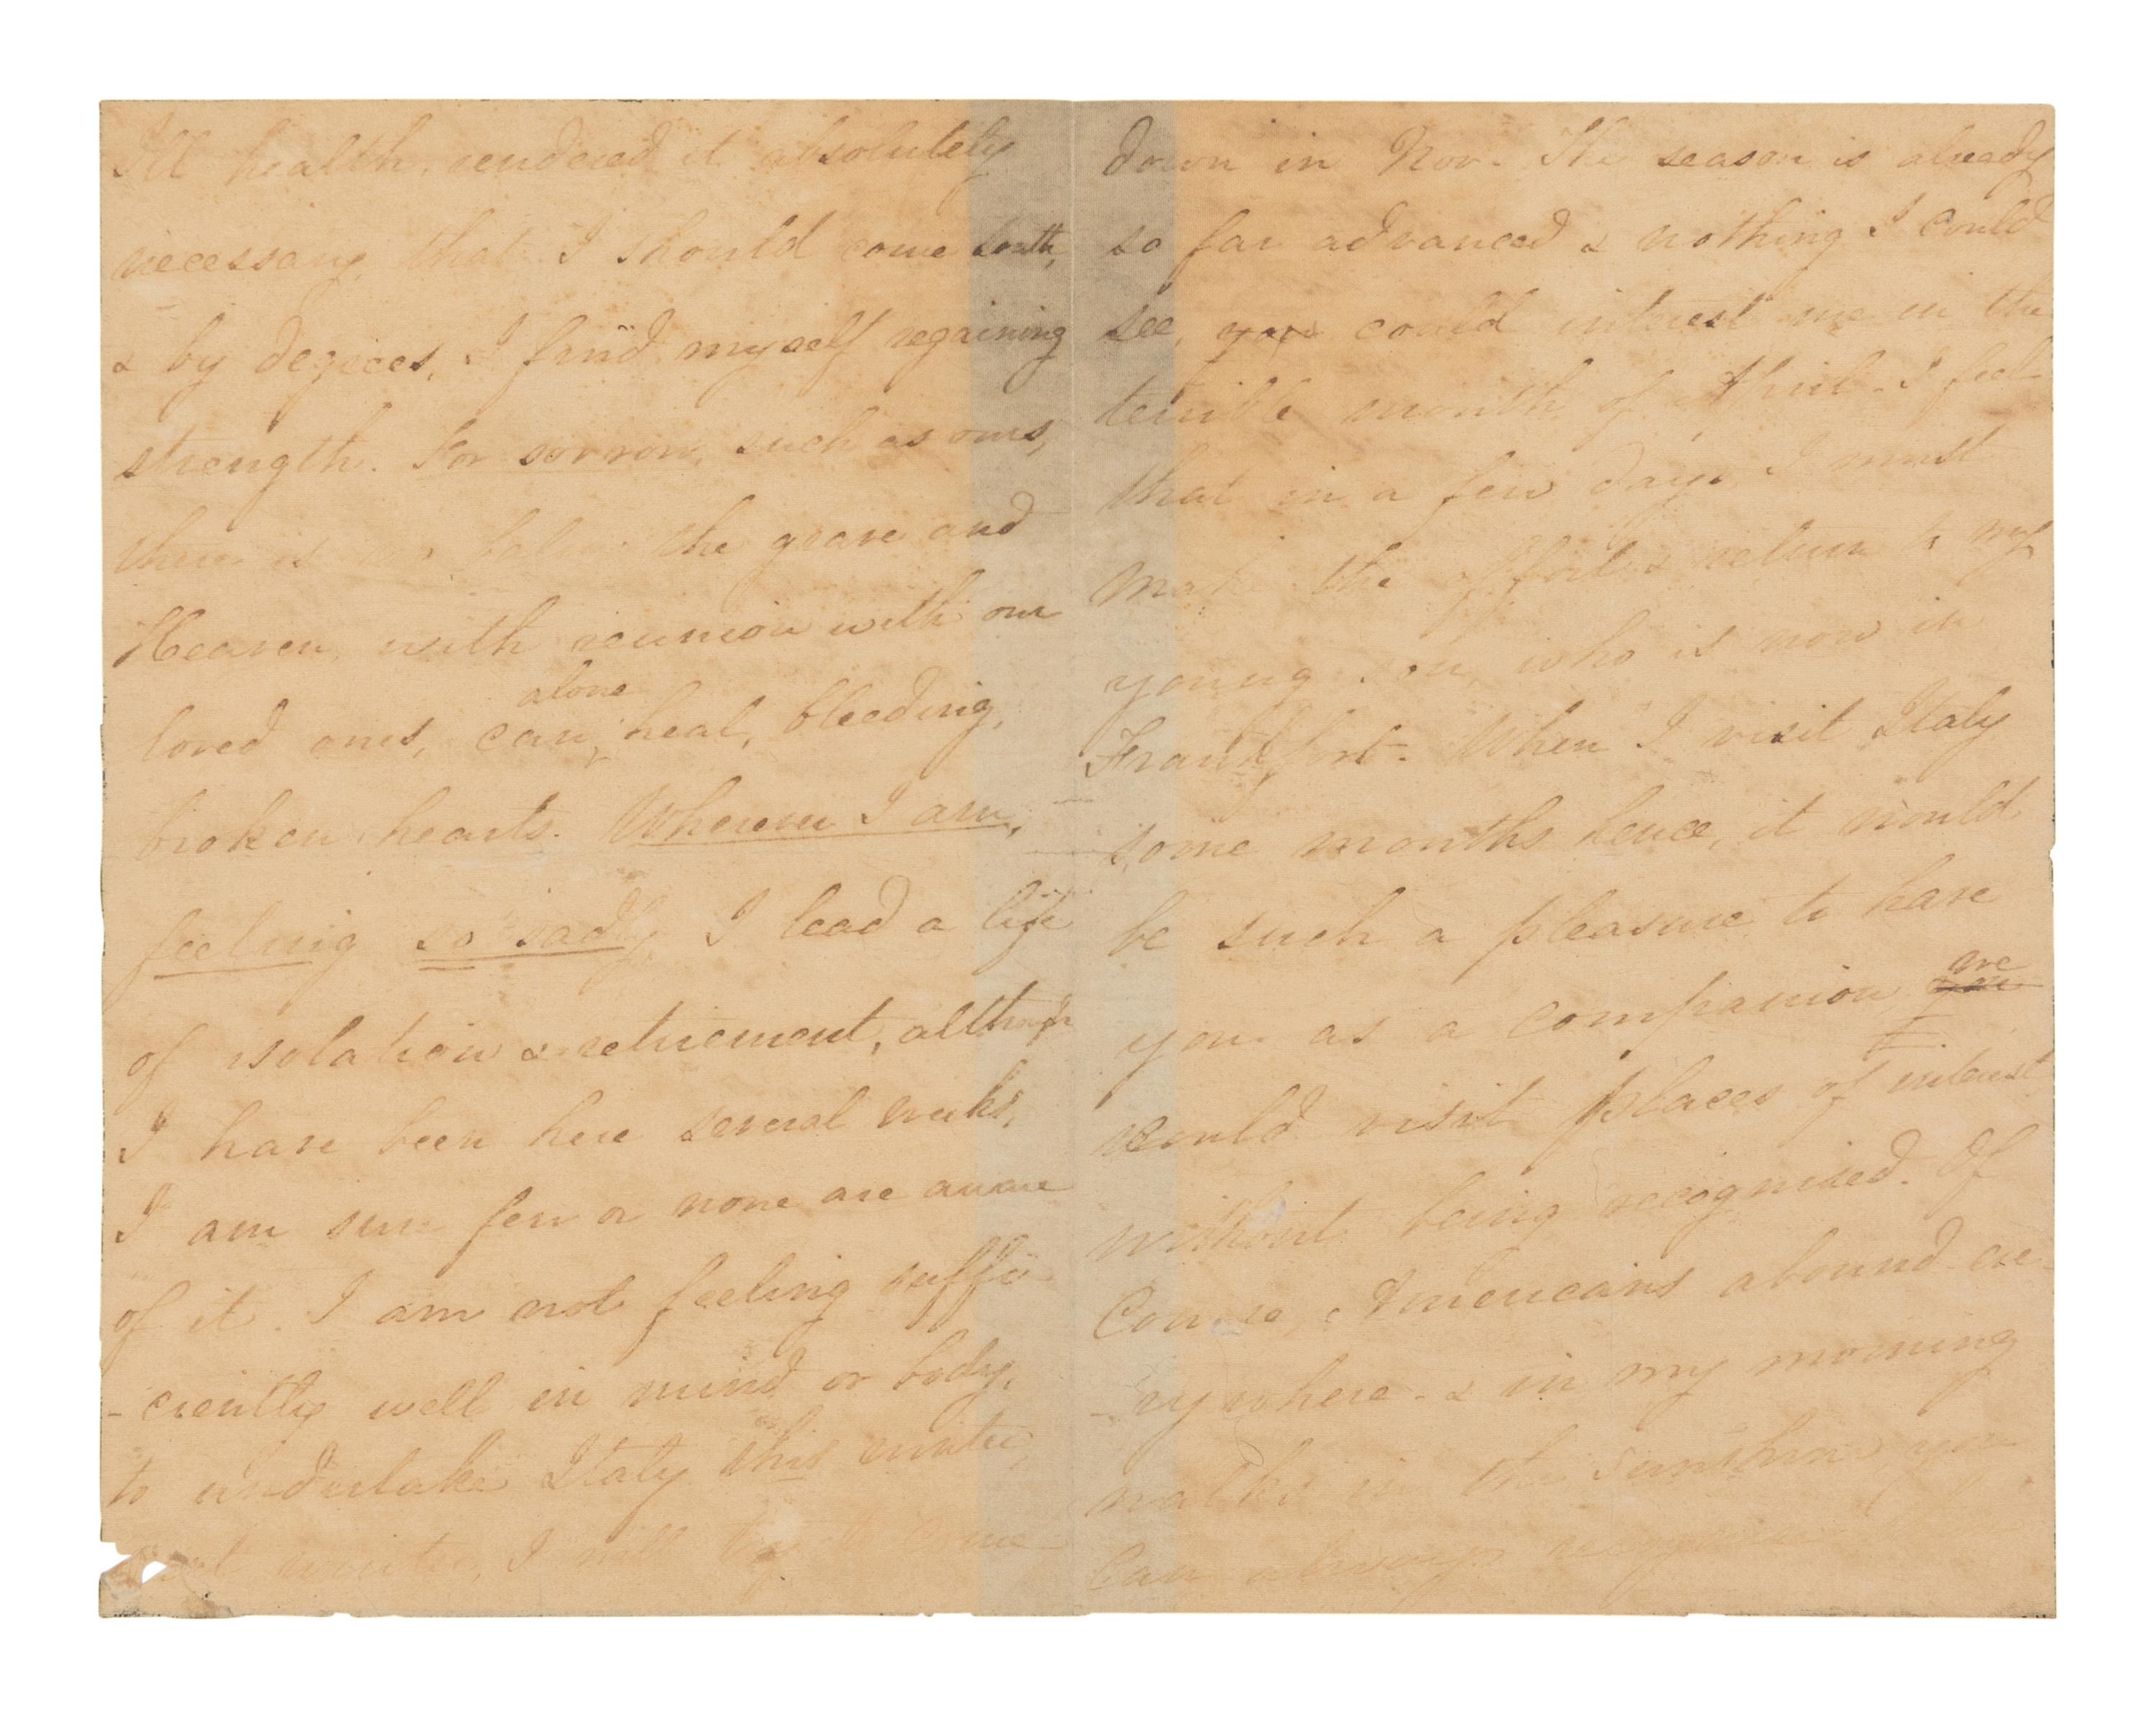 Ill health, rendered it absolutely
necessary that I should come South,
& by degrees, I find myself regaining
strength. For sorrow, such as ours,
there is no balm the grave and
Heaven, with reunion with our
loved ones, can, alone heal, bleeding,
broken hearts. Wherever I am,
feeling so sadly, I lead a life
of isolation & retirement, although
I have been here several weeks,
I am sure few or none are aware
of it. I am not feeling suffi
- ciently well in mind or body,
to undertake Italy this winter,
next winter, I will try to come
down in Nov - The season is already
so far advanced & nothing I could
see, could interest me in the
terrible month of April - I feel
that in a few days I must
make the effort & return to my
young son, who is now in
Frankfort - When I visit Italy
some months hence, it would
be such a pleasure to have
you as a companion, we
would visit places of interest
without being recognised. Of
Course, Americans abound ev
- rywhere - & in my morning
walks in the sunshine, you
can always